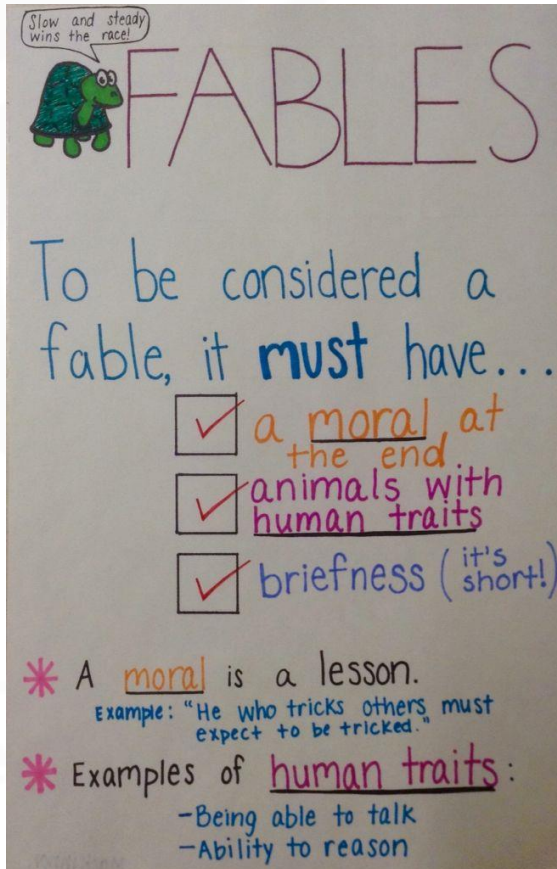 Slow and steady
wins the race!
FABLES
To be considered a
fable, it must have...
a moral at
the end
animals with
human traits
briefness (it's
short!)
* A moral is a lesson.
Example: "He who tricks others must
expect to be tricked."
* Examples of human traits:
-Being able to talk
-Ability to reason